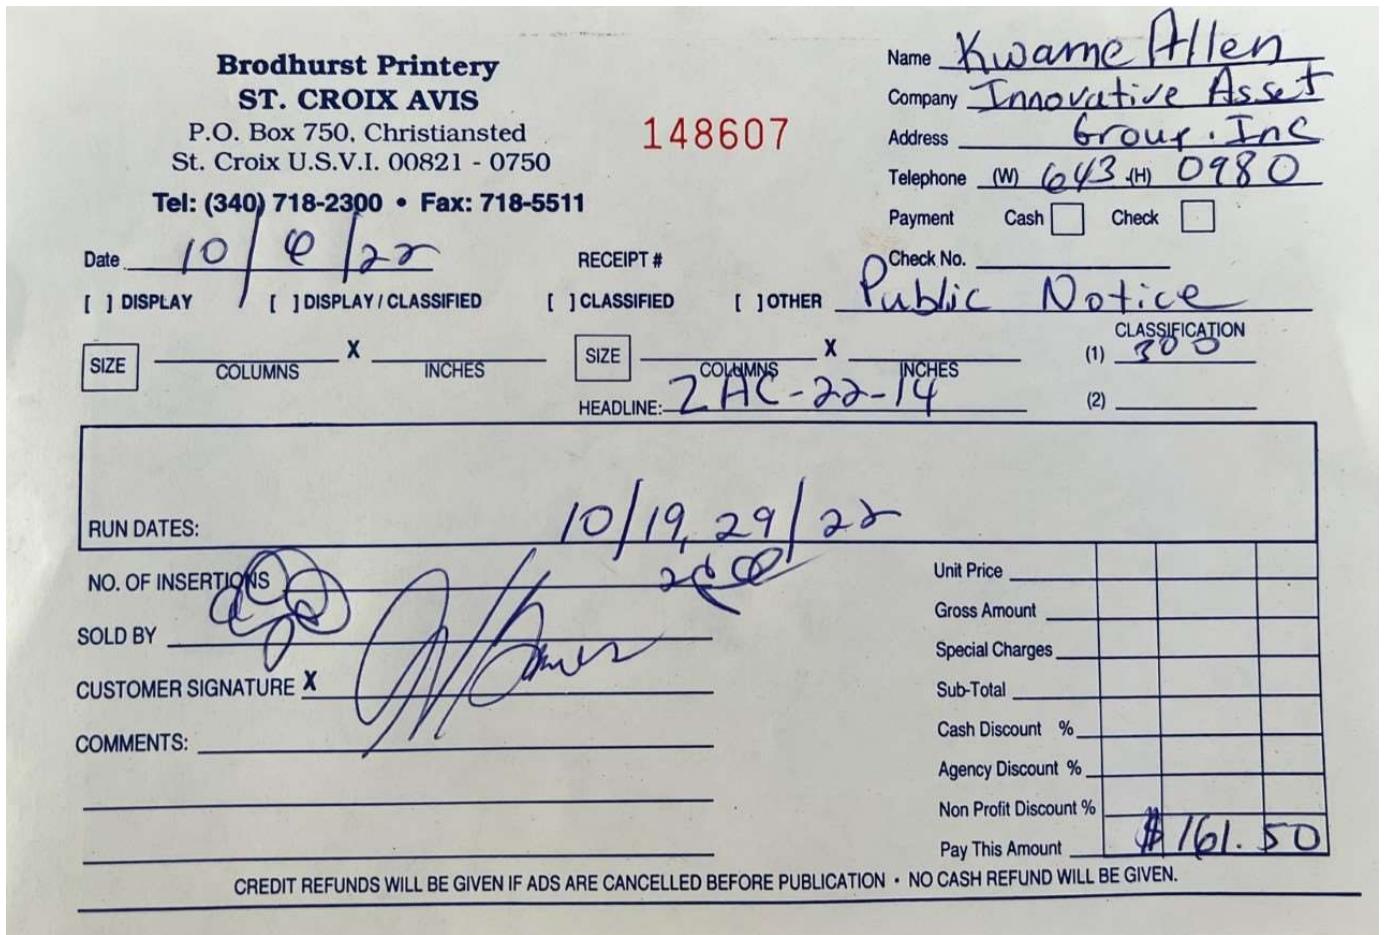 Brodhurst Printery
ST. CROIX AVIS
P.O. Box 750, Christiansted
St. Croix U.S.V.I. 00821 - 0750
Tel: (340) 718-2300 • Fax: 718-5511
148607
Name Kwame Allen
Company Innovative Asset
Address Group. Inc
Telephone (W) 643 (H) 0980
Payment Cash Check
Date 10/6/22
RECEIPT #
Check No.
[ ] DISPLAY [ ] DISPLAY / CLASSIFIED [ ] CLASSIFIED [ ] OTHER Public Notice
SIZE COLUMNS X INCHES SIZE COLUMNS X INCHES
CLASSIFICATION
(1) 300
HEADLINE: ZAC-22-14
(2)
RUN DATES: 10/19, 29/22
NO. OF INSERTIONS
SOLD BY
CUSTOMER SIGNATURE X
COMMENTS:
Unit Price
Gross Amount
Special Charges
Sub-Total
Cash Discount %
Agency Discount %
Non Profit Discount %
Pay This Amount $161.50
CREDIT REFUNDS WILL BE GIVEN IF ADS ARE CANCELLED BEFORE PUBLICATION • NO CASH REFUND WILL BE GIVEN.